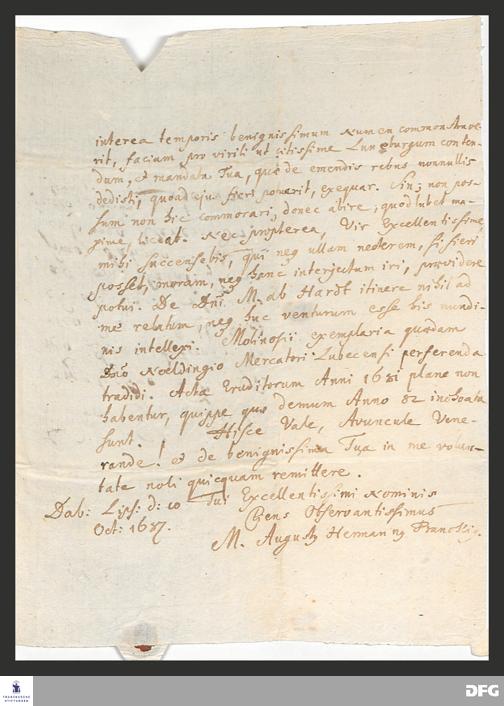 interea temporis benignissimum Numen commonstrave-
rit, faciam pro virili ut citissime Luneburgum conten-
dam, et mandata Tua, quae de emendis rebus nonnullis
dedisti, quoad ejus fieri poterit, exequar. Sin; non pos-
sum non hic commorari, donec abire, quod lubet ma-
xime, liceat. Nec propterea, Vir Excellentissime,
mihi succensebis, qui neq ullam necterem, si fieri
posset, moram, neq hanc interjectum iri, praevidere
potui. De Dni. M. ab Hardt itinere nihil ad
me relatum, neq huc venturum esse his nundi-
nis intellexi. Molinosii exemplaria quaedam
Dno Noeldingio Mercatori Lubecensi perferenda
tradidi. Acta Eruditorum Anni 1681 plane non
habentur, quippe quae demum Anno 82 inchoata
sunt. Hisce Vale, Avuncule Vene-
rande! et de benignissima Tua in me volun-
tate noli quicquam remittere.
Tui Excellentissimi Nominis
Dab: Lips: d: 10
Oct: 1687.
Cliens Observantissimus
M. August Hermannq Franckiq.
FRANCKESCHE STIFTUNGEN
DFG